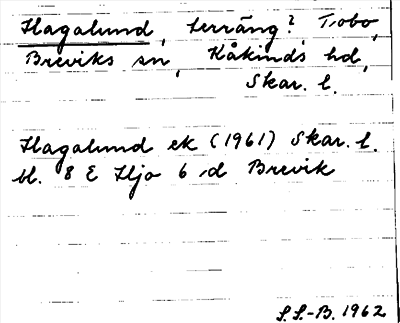 Hagalund, terräng? Tobo,
Breviks sn, Kåkinds hd,
Skar. l.
Hagalund ek (1961) Skar. l.
bl. 8 E Hjo 6 d Brevik
S.S.-B. 1962